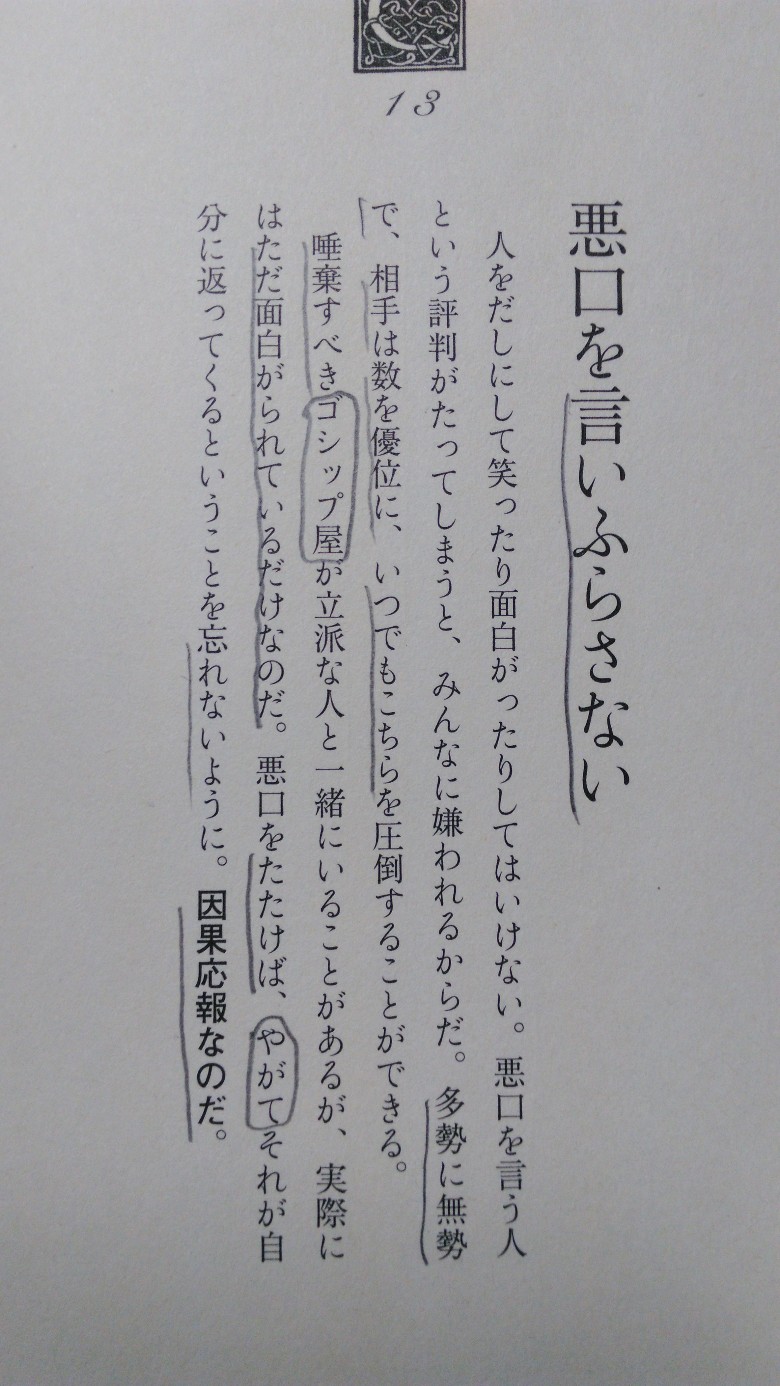 13
悪口を言いふらさない
人をだしにして笑ったり面白がったりしてはいけない。悪口を言う人
という評判がたってしまうと、みんなに嫌われるからだ。多勢に無勢
で、相手は数を優位に、いつでもこちらを圧倒することができる。
唾棄すべきゴシップ屋が立派な人と一緒にいることがあるが、実際に
はただ面白がられているだけなのだ。悪口をたたけば、やがてそれが自
分に返ってくるということを忘れないように。因果応報なのだ。